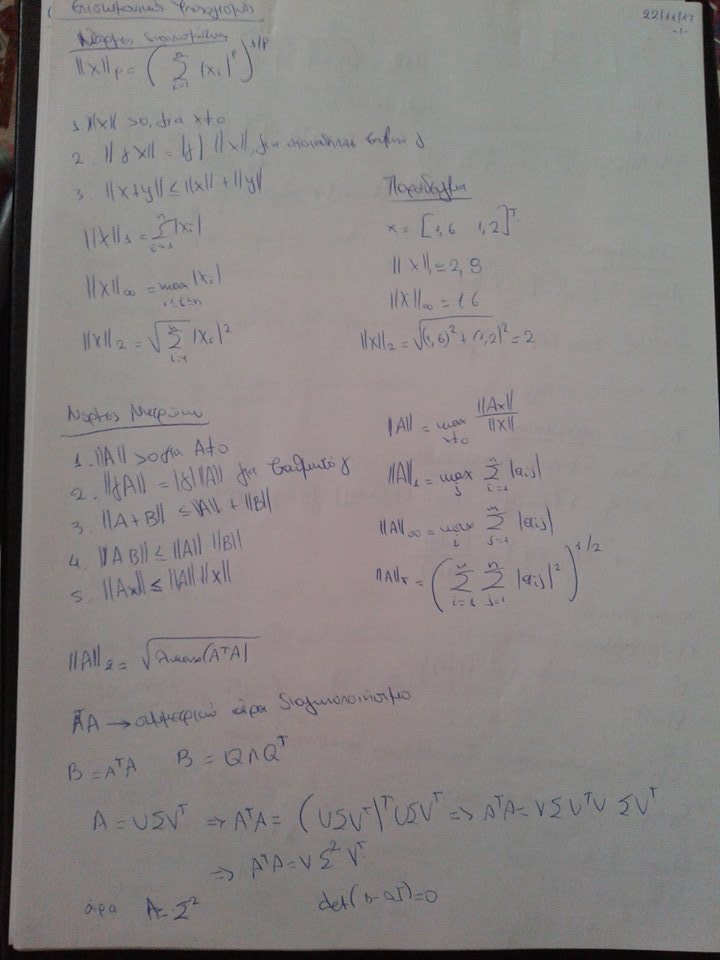 Επιστημονικός Υπολογισμός
22/11/17
-1-
Νόρμες διανυσμάτων
||x||p = ( Σ i=1 n |xi|^p )^1/p
1. ||x|| >0, για x≠0
2. ||γx|| = |γ| ||x||, για οποιοδήποτε βαθμωτό γ
3. ||x+y|| ≤ ||x|| + ||y||
||x||1 = Σ i=1 n |xi|
||x||∞ = max 1≤i≤n |xi|
||x||2 = √ Σ i=1 n |xi|^2
Παράδειγμα
x = [1,6 1,2]^T
||x||1 = 2,8
||x||∞ = 1,6
||x||2 = √(1,6)^2 + (1,2)^2 = 2
Νόρμες Μητρώων
1. ||A|| >0 για A≠0
2. ||γA|| = |γ| ||A|| για βαθμωτό γ
3. ||A+B|| ≤ ||A|| + ||B||
4. ||AB|| ≤ ||A|| ||B||
5. ||Ax|| ≤ ||A|| ||x||
||A|| = max x≠0 ||Ax|| / ||x||
||A||1 = max j Σ i=1 n |aij|
||A||∞ = max i Σ j=1 n |aij|
||A||F = ( Σ i=1 n Σ j=1 n |aij|^2 )^1/2
||A||2 = √λmax(A^TA)
A^TA → συμμετρικό άρα διαγωνοποιήσιμο
B = A^TA B = QΛQ^T
A = UΣV^T ⇒ A^TA = (UΣV^T)^T UΣV^T ⇒ A^TA = VΣU^TU ΣV^T
⇒ A^TA = VΣ^2V^T
άρα Λ = Σ^2 det(B-λI)=0